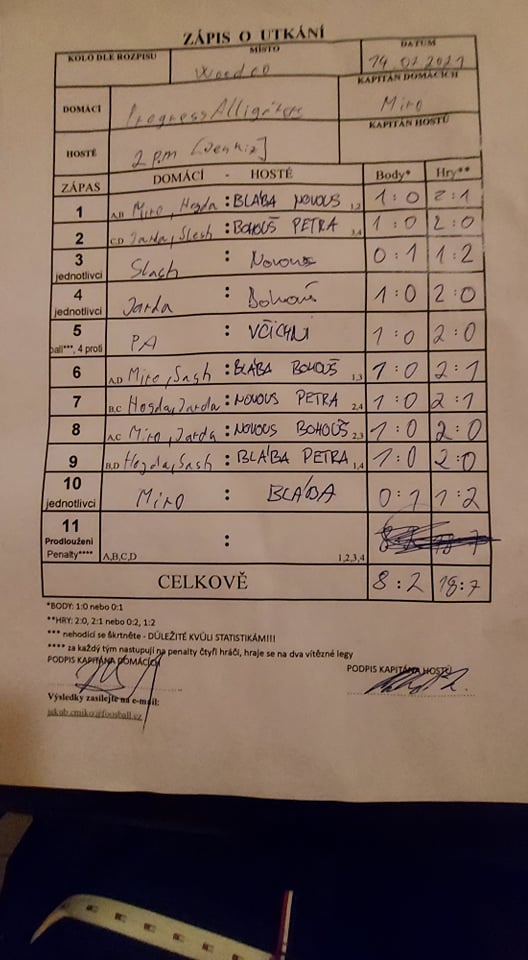 ZÁPIS O UTKÁNÍ
KOLO DLE ROZPISU MÍSTO DATUM
Woodco 14.07.2021
DOMÁCÍ Progress Alligators KAPITÁN DOMÁCÍCH
Miro
HOSTÉ 2 p.m KAPITÁN HOSTŮ
ZÁPAS DOMÁCÍ - HOSTÉ Body* Hry**
1 A,B Miro, Hogda : BLÁBA NOVOUS 1,2 1:0 2:1
2 C,D Jarda, Slash : BOHOUŠ PETRA 3,4 1:0 2:0
3 jednotlivci Slash : Novous 0:1 1:2
4 jednotlivci Jarda : Bohouš 1:0 2:0
5 ball***, 4 proti PA : VŠICHNI 1:0 2:0
6 A,D Miro, Sash : BLÁBA BOHOUŠ 1,3 1:0 2:1
7 B,C Hogda, Jarda : NOVOUS PETRA 2,4 1:0 2:1
8 A,C Miro, Jarda : NOVOUS BOHOUŠ 2,3 1:0 2:0
9 B,D Hogda, Sash : BLÁBA PETRA 1,4 1:0 2:0
10 jednotlivci MIRO : BLÁBA 0:1 1:2
11 Prodloužení Penalty**** A,B,C,D : 1,2,3,4
CELKOVĚ 8:2 18:7
*BODY: 1:0 nebo 0:1
**HRY: 2:0, 2:1 nebo 0:2, 1:2
*** nehodící se škrtněte - DŮLEŽITÉ KVŮLI STATISTIKÁM!!!
**** za každý tým nastupují na penalty čtyři hráči, hraje se na dva vítězné legy
PODPIS KAPITÁNA DOMÁCÍCH PODPIS KAPITÁNA HOSTŮ
Výsledky zasílejte na e-mail:
jakub.cmiko@foosball.cz